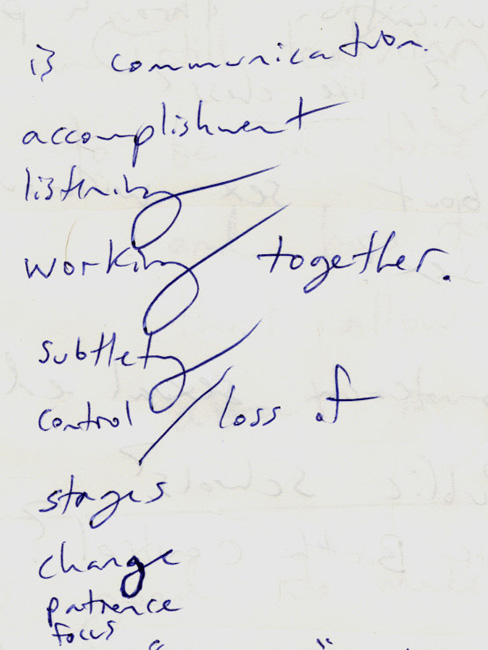 is communication.
accomplishment
listening
working together.
subtlety
control / loss of
stages
change
patience
focus